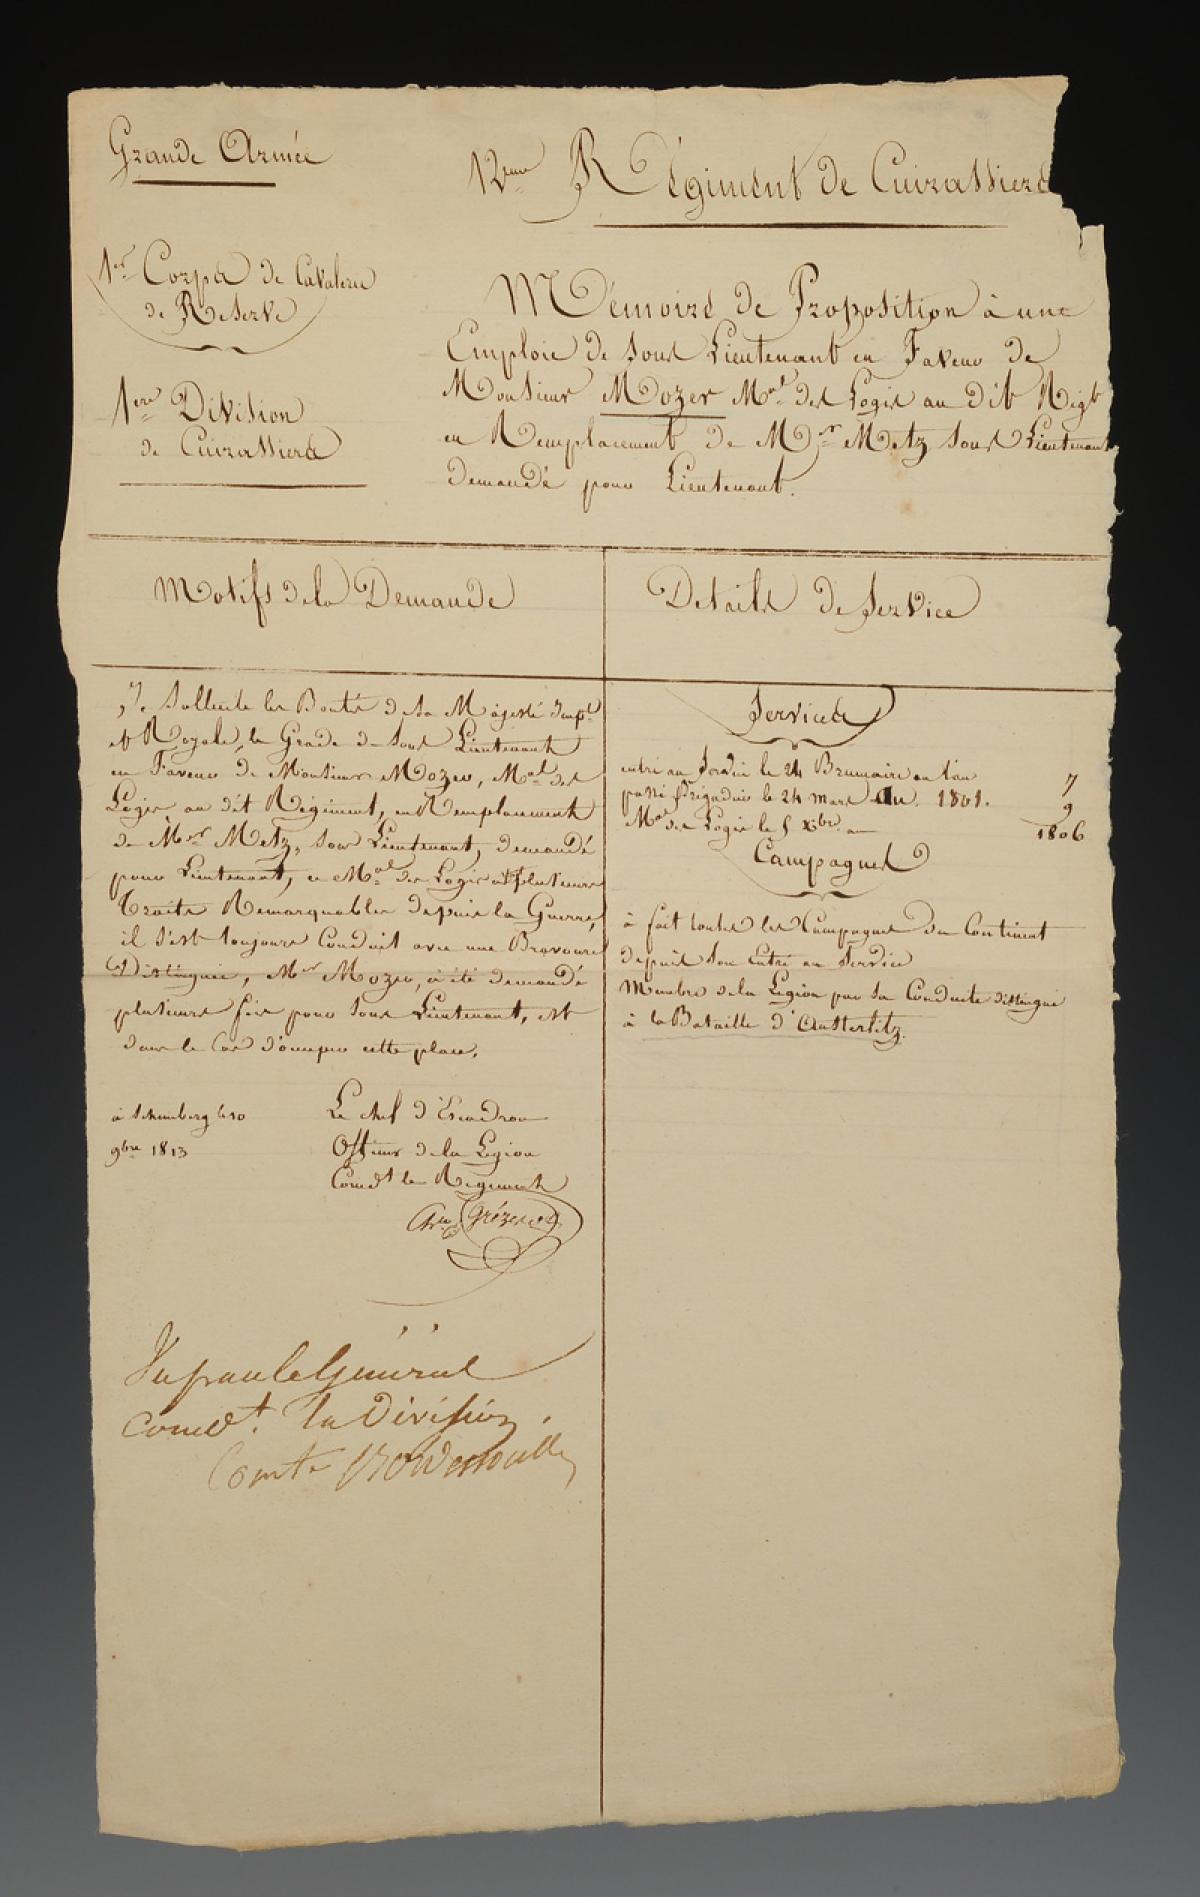 Grande Armée
12eme Régiment de Cuirassiers
1er Corps de Cavalerie
de Reserve
1ere Division
de Cuirassiers
Mémoire de Proposition à une
Emploie de Sous Lieutenant en Faveur de
Monsieur Mozer Mal des Logis au dit Regt
en Remplacement de Mr Metz Sous Lieutenant
demandé pour Lieutenant.
Motifs de la Demande
Je Sollicite les Bontés de Sa Majesté Imple
et Royale, le Grade de Sous Lieutenant
en Faveur de Monsieur Mozer, Mal des
Logis, au dit Régiment, en Remplacement
de Mr Metz, Sous Lieutenant, demandé
pour Lieutenant, ce Mal des Logis a plusieurs
Traits Remarquables depuis la Guerre,
il s'est toujours Conduit avec une Bravoure
Distinguée, Mr Mozer, à été demandé
plusieurs fois pour Sous Lieutenant, est
dans le Cas d'occuper cette place.
à Schemberg le 10
9bre 1813
Le chef d'Escadron
Officier de la Légion
Comdt le Regiment
Grézes
Vu par le Général
Comdt. la Division
Comte Bordessoulle
Details de Service
Services
entré au Service le 24 Brumaire an l'an 7
passé Brigadier le 24 mars an. 1801. 9
Mal des Logis le 5 Xbre an 1806
Campagnes
à fait toutes les Campagnes du Continent
depuis Son Entré au Service
Membre de la Légion par Sa Conduite distingué
à la Bataille d'Austerlitz.